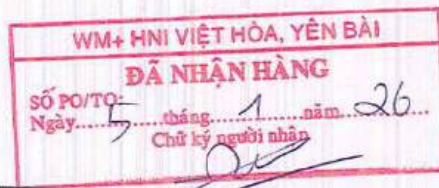 WM+ HNI VIỆT HÒA, YÊN BÀI
ĐÃ NHẬN HÀNG
SỐ PO/TO:
Ngày.....5.....tháng.....1.....năm.....26
Chữ ký người nhận